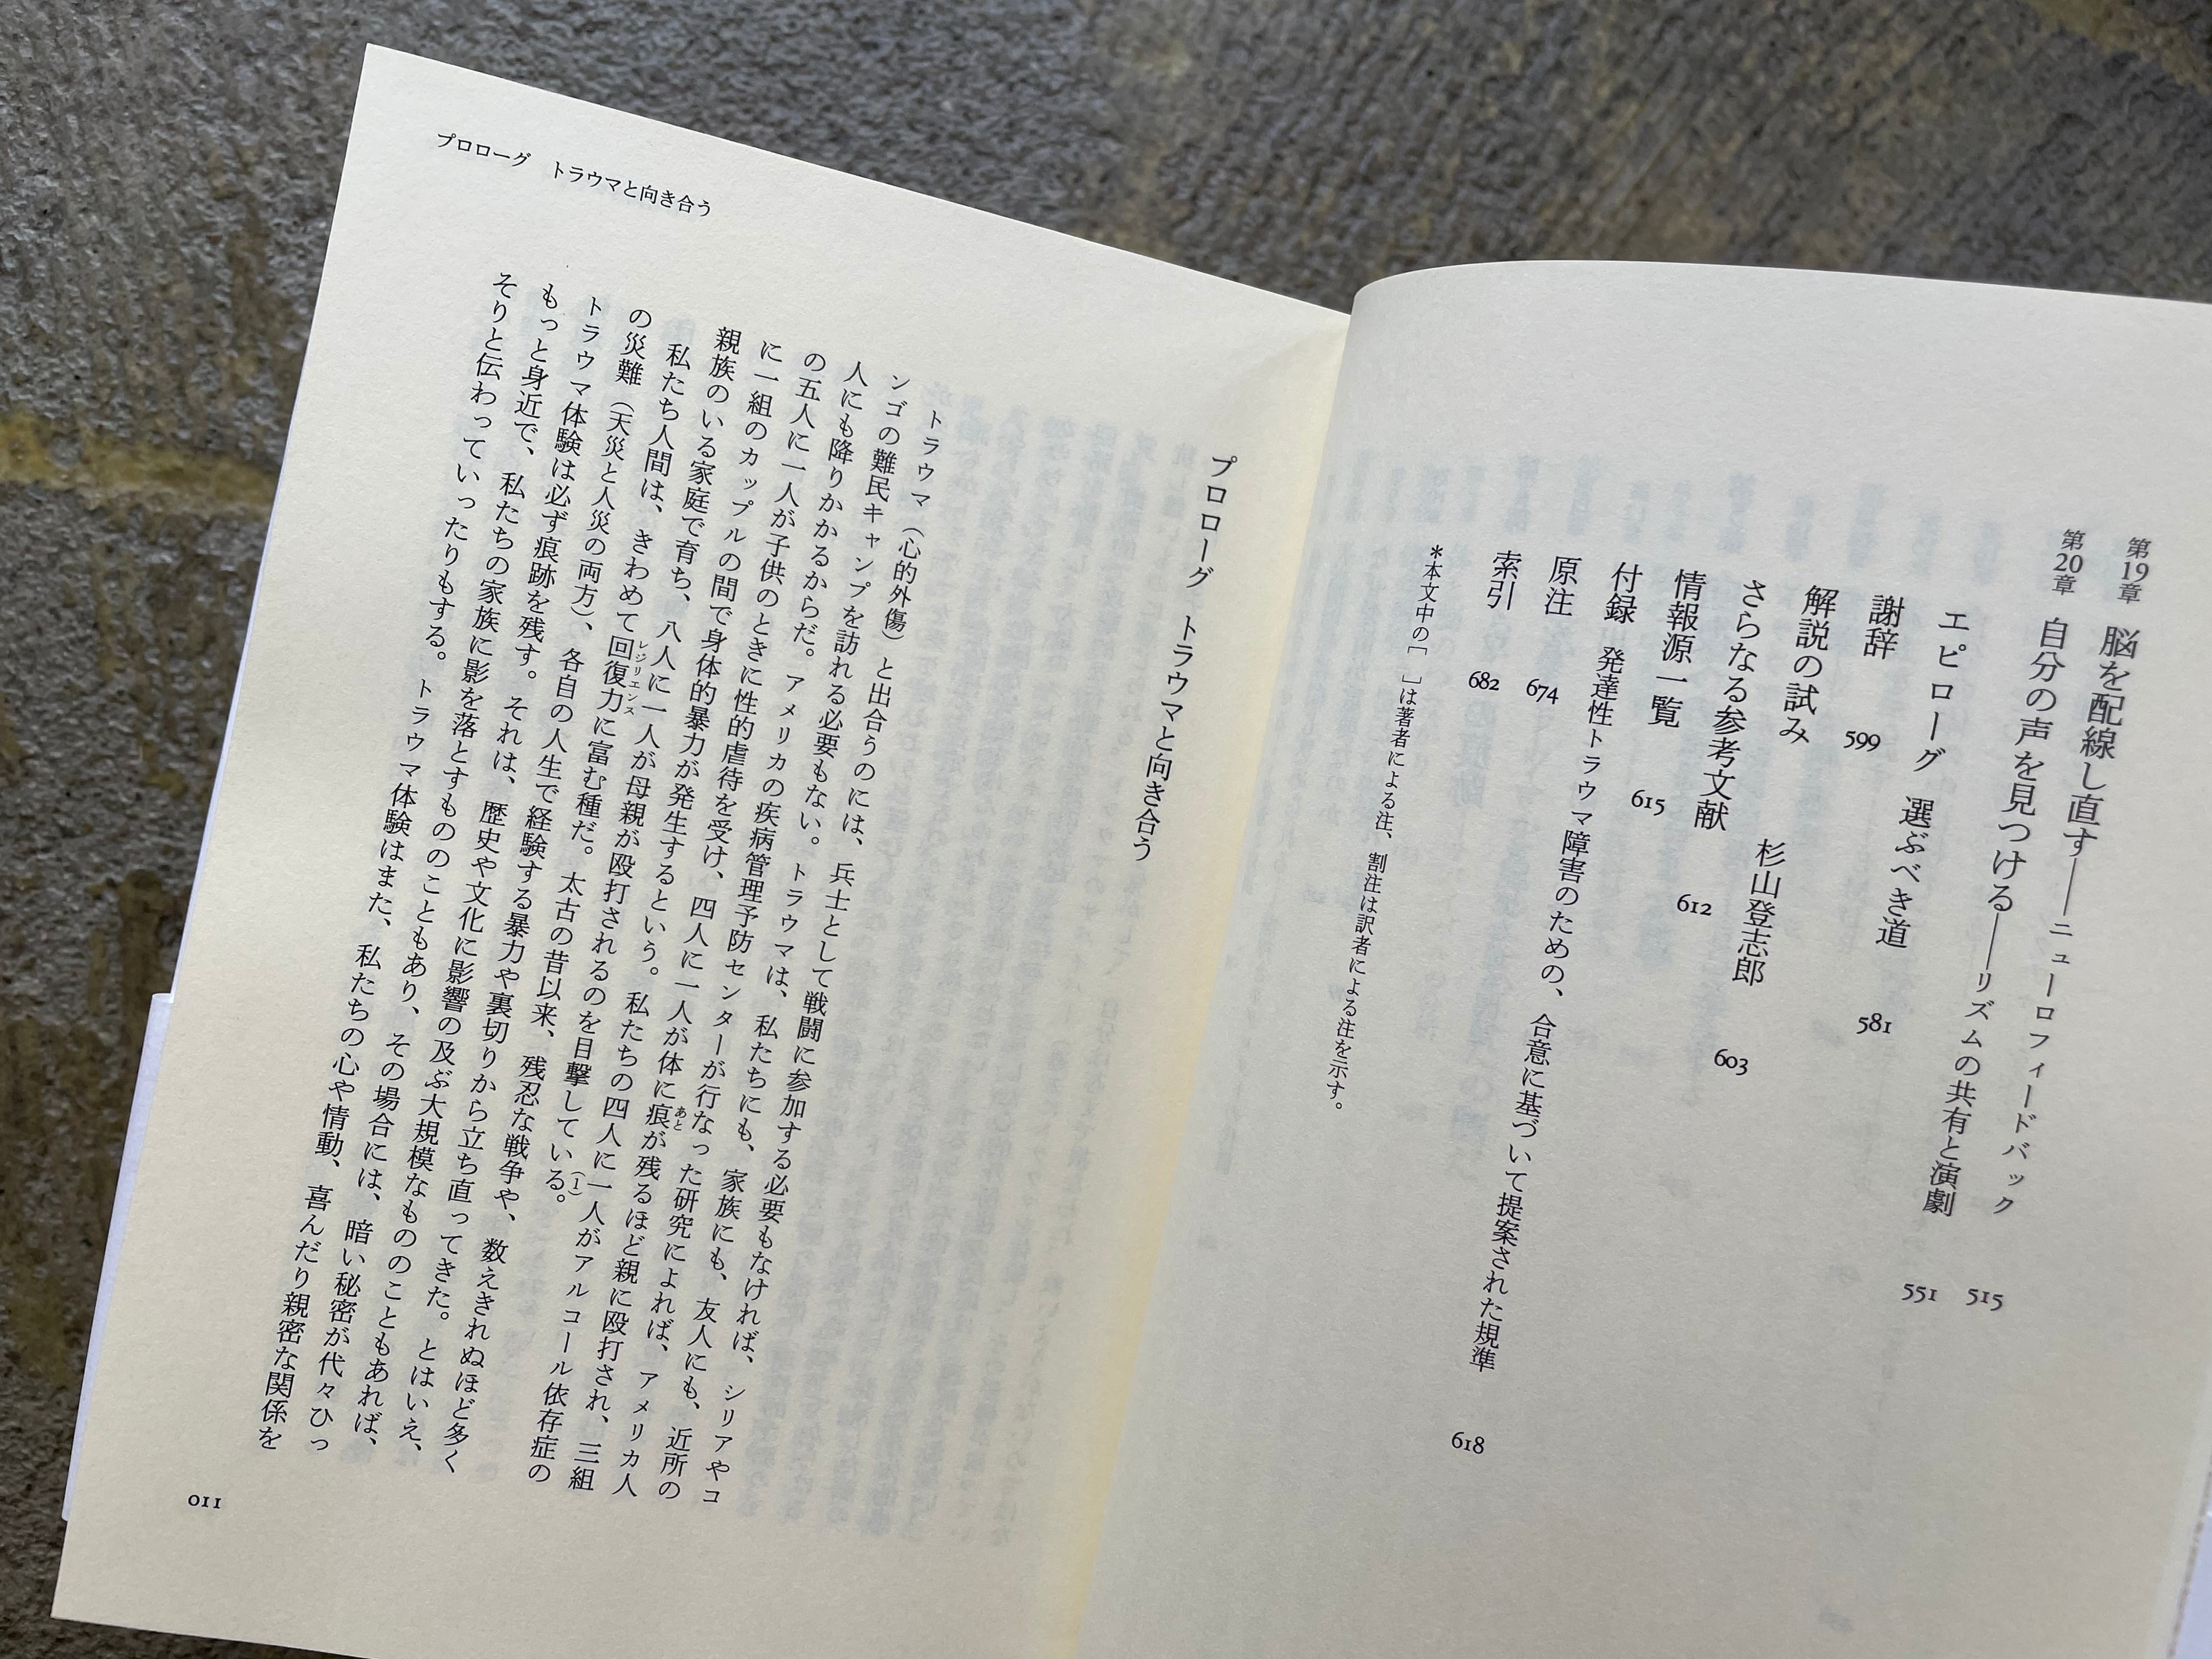 第19章 脳を配線し直す――ニューロフィードバック 515
第20章 自分の声を見つける――リズムの共有と演劇 551
エピローグ 選ぶべき道 581
謝辞 599
解説の試み 杉山登志郎 603
さらなる参考文献 612
情報源一覧 615
付録 発達性トラウマ障害のための、合意に基づいて提案された規準 618
原注 674
索引 682
*本文中の[ ]は著者による注、割注は訳者による注を示す。
プロローグ トラウマと向き合う
プロローグ トラウマと向き合う
トラウマ(心的外傷)と出合うのには、兵士として戦闘に参加する必要もなければ、シリアやコ
ンゴの難民キャンプを訪れる必要もない。トラウマは、私たちにも、家族にも、友人にも、近所の
人にも降りかかるからだ。アメリカの疾病管理予防センターが行なった研究によれば、アメリカ人
の五人に一人が子供のときに性的虐待を受け、四人に一人が体に痕あとが残るほど親に殴打され、三組
に一組のカップルの間で身体的暴力が発生するという。私たちの四人に一人がアルコール依存症の
親族のいる家庭で育ち、八人に一人が母親が殴打されるのを目撃している。(1)
私たち人間は、きわめて回復力レジリエンスに富む種だ。太古の昔以来、残忍な戦争や、数えきれぬほど多く
の災難(天災と人災の両方)、各自の人生で経験する暴力や裏切りから立ち直ってきた。とはいえ、
トラウマ体験は必ず痕跡を残す。それは、歴史や文化に影響の及ぶ大規模なもののこともあれば、
もっと身近で、私たちの家族に影を落とすもののこともあり、その場合には、暗い秘密が代々ひっ
そりと伝わっていったりもする。トラウマ体験はまた、私たちの心や情動、喜んだり親密な関係を
011